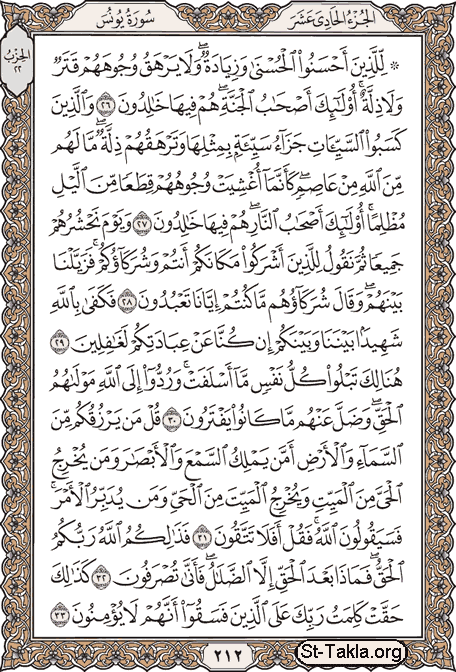 الجُزْءُ الحَادِى عَشَرَ
سُورَةُ يُونُسَ
الحِزْبُ
٢٢
۞ لِّلَّذِينَ أَحْسَنُوا۟ ٱلْحُسْنَىٰ وَزِيَادَةٌ ۖ وَلَا يَرْهَقُ وُجُوهَهُمْ قَتَرٌ
وَلَا ذِلَّةٌ ۚ أُو۟لَـٰٓئِكَ أَصْحَـٰبُ ٱلْجَنَّةِ ۖ هُمْ فِيهَا خَـٰلِدُونَ ٢٦ وَٱلَّذِينَ
كَسَبُوا۟ ٱلسَّيِّـَٔاتِ جَزَآءُ سَيِّئَةٍۭ بِمِثْلِهَا وَتَرْهَقُهُمْ ذِلَّةٌ ۖ مَّا لَهُم
مِّنَ ٱللَّهِ مِنْ عَاصِمٍ ۖ كَأَنَّمَآ أُغْشِيَتْ وُجُوهُهُمْ قِطَعًا مِّنَ ٱلَّيْلِ
مُظْلِمًا ۚ أُو۟لَـٰٓئِكَ أَصْحَـٰبُ ٱلنَّارِ ۖ هُمْ فِيهَا خَـٰلِدُونَ ٢٧ وَيَوْمَ نَحْشُرُهُمْ
جَمِيعًا ثُمَّ نَقُولُ لِلَّذِينَ أَشْرَكُوا۟ مَكَانَكُمْ أَنتُمْ وَشُرَكَآؤُكُمْ ۚ فَزَيَّلْنَا
بَيْنَهُمْ ۖ وَقَالَ شُرَكَآؤُهُم مَّا كُنتُمْ إِيَّانَا تَعْبُدُونَ ٢٨ فَكَفَىٰ بِٱللَّهِ
شَهِيدًۢا بَيْنَنَا وَبَيْنَكُمْ إِن كُنَّا عَنْ عِبَادَتِكُمْ لَغَـٰفِلِينَ ٢٩
هُنَالِكَ تَبْلُوا۟ كُلُّ نَفْسٍ مَّآ أَسْلَفَتْ ۚ وَرُدُّوٓا۟ إِلَى ٱللَّهِ مَوْلَىٰهُمُ
ٱلْحَقِّ ۖ وَضَلَّ عَنْهُم مَّا كَانُوا۟ يَفْتَرُونَ ٣٠ قُلْ مَن يَرْزُقُكُم مِّنَ
ٱلسَّمَآءِ وَٱلْأَرْضِ أَمَّن يَمْلِكُ ٱلسَّمْعَ وَٱلْأَبْصَـٰرَ وَمَن يُخْرِجُ
ٱلْحَىَّ مِنَ ٱلْمَيِّتِ وَيُخْرِجُ ٱلْمَيِّتَ مِنَ ٱلْحَىِّ وَمَن يُدَبِّرُ ٱلْأَمْرَ ۚ
فَسَيَقُولُونَ ٱللَّهُ ۚ فَقُلْ أَفَلَا تَتَّقُونَ ٣١ فَذَٰلِكُمُ ٱللَّهُ رَبُّكُمُ
ٱلْحَقُّ ۖ فَمَاذَا بَعْدَ ٱلْحَقِّ إِلَّا ٱلضَّلَـٰلُ ۖ فَأَنَّىٰ تُصْرَفُونَ ٣٢ كَذَٰلِكَ
حَقَّتْ كَلِمَتُ رَبِّكَ عَلَى ٱلَّذِينَ فَسَقُوٓا۟ أَنَّهُمْ لَا يُؤْمِنُونَ ٣٣
٢١٢
St-Takla.org